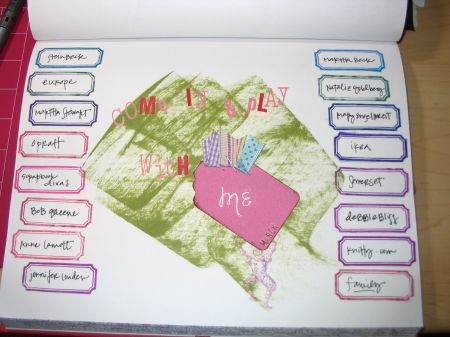 steinbeck
europe
martha stewart
oprah
scrapbook
divas
Bob greene
anne lamott
jennifer louden
COMe IN & pLAY
WitH
me
martha Beck
natalie goldberg
mary engelbreit
ikea
somerset
knitty.com
family